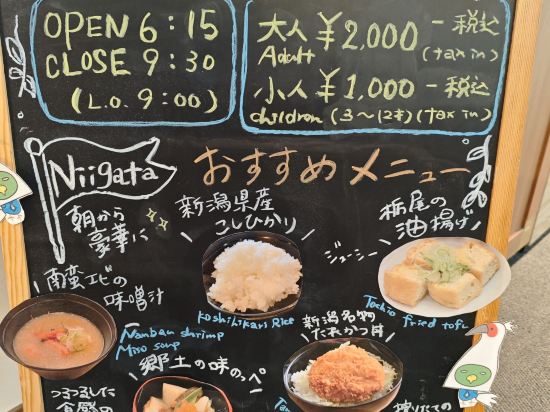 OPEN 6:15
CLOSE 9:30
(L.O. 9:00)
大人 ¥2,000 -税込
Adult (tax in)
小人 ¥1,000 -税込
children (3～12才) (tax in)
Niigata
おすすめメニュー
朝から
豪華に
新潟県産
こしひかり
Koshihikari Rice
栃尾の
油揚げ
ジューシー
Tochio fried tofu
南蛮エビの
味噌汁
Nanban shrimp
Miso soup
新潟名物
たれかつ丼
郷土の味のっぺ
つるつるした
食感の